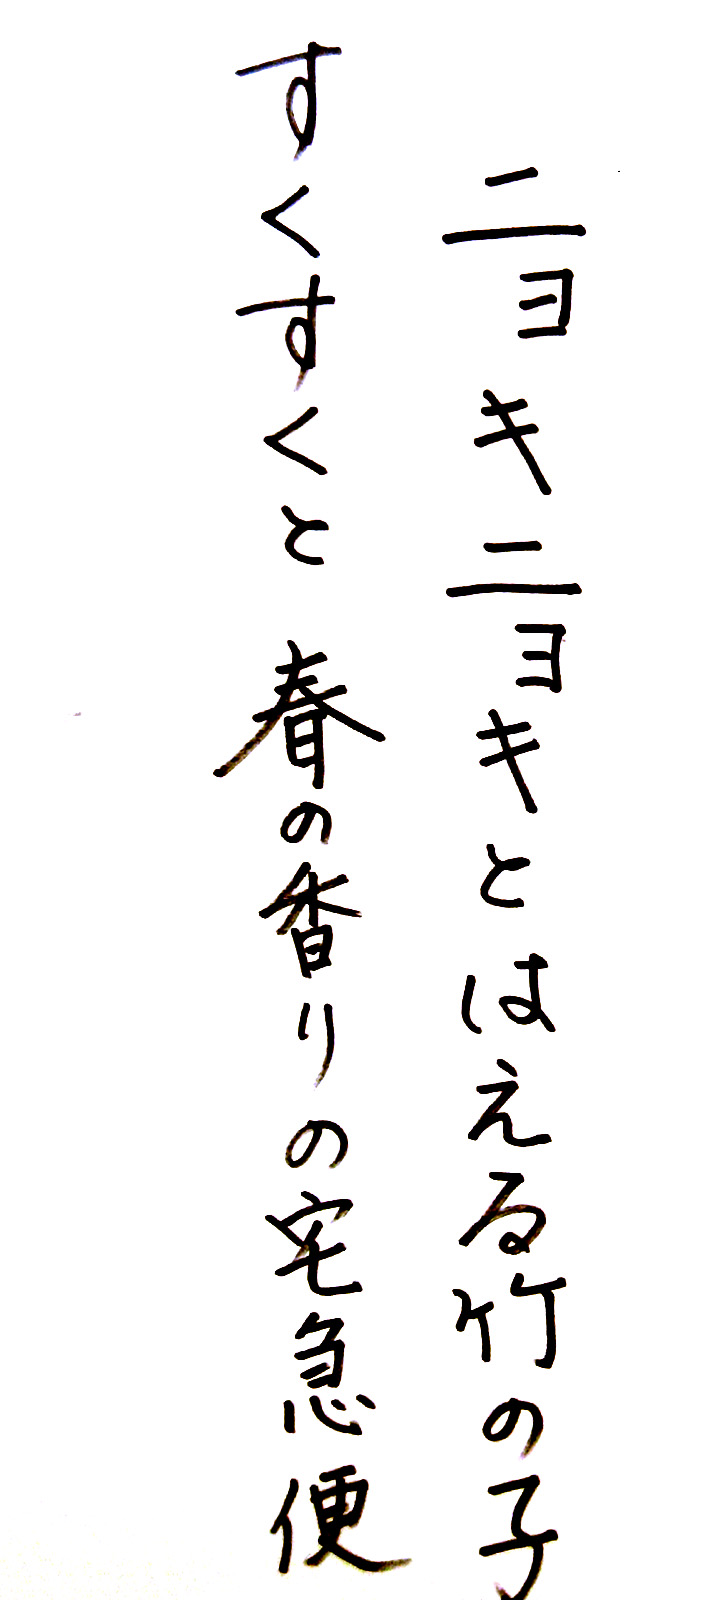 ニョキニョキとはえる竹の子
すくすくと 春の香りの宅急便